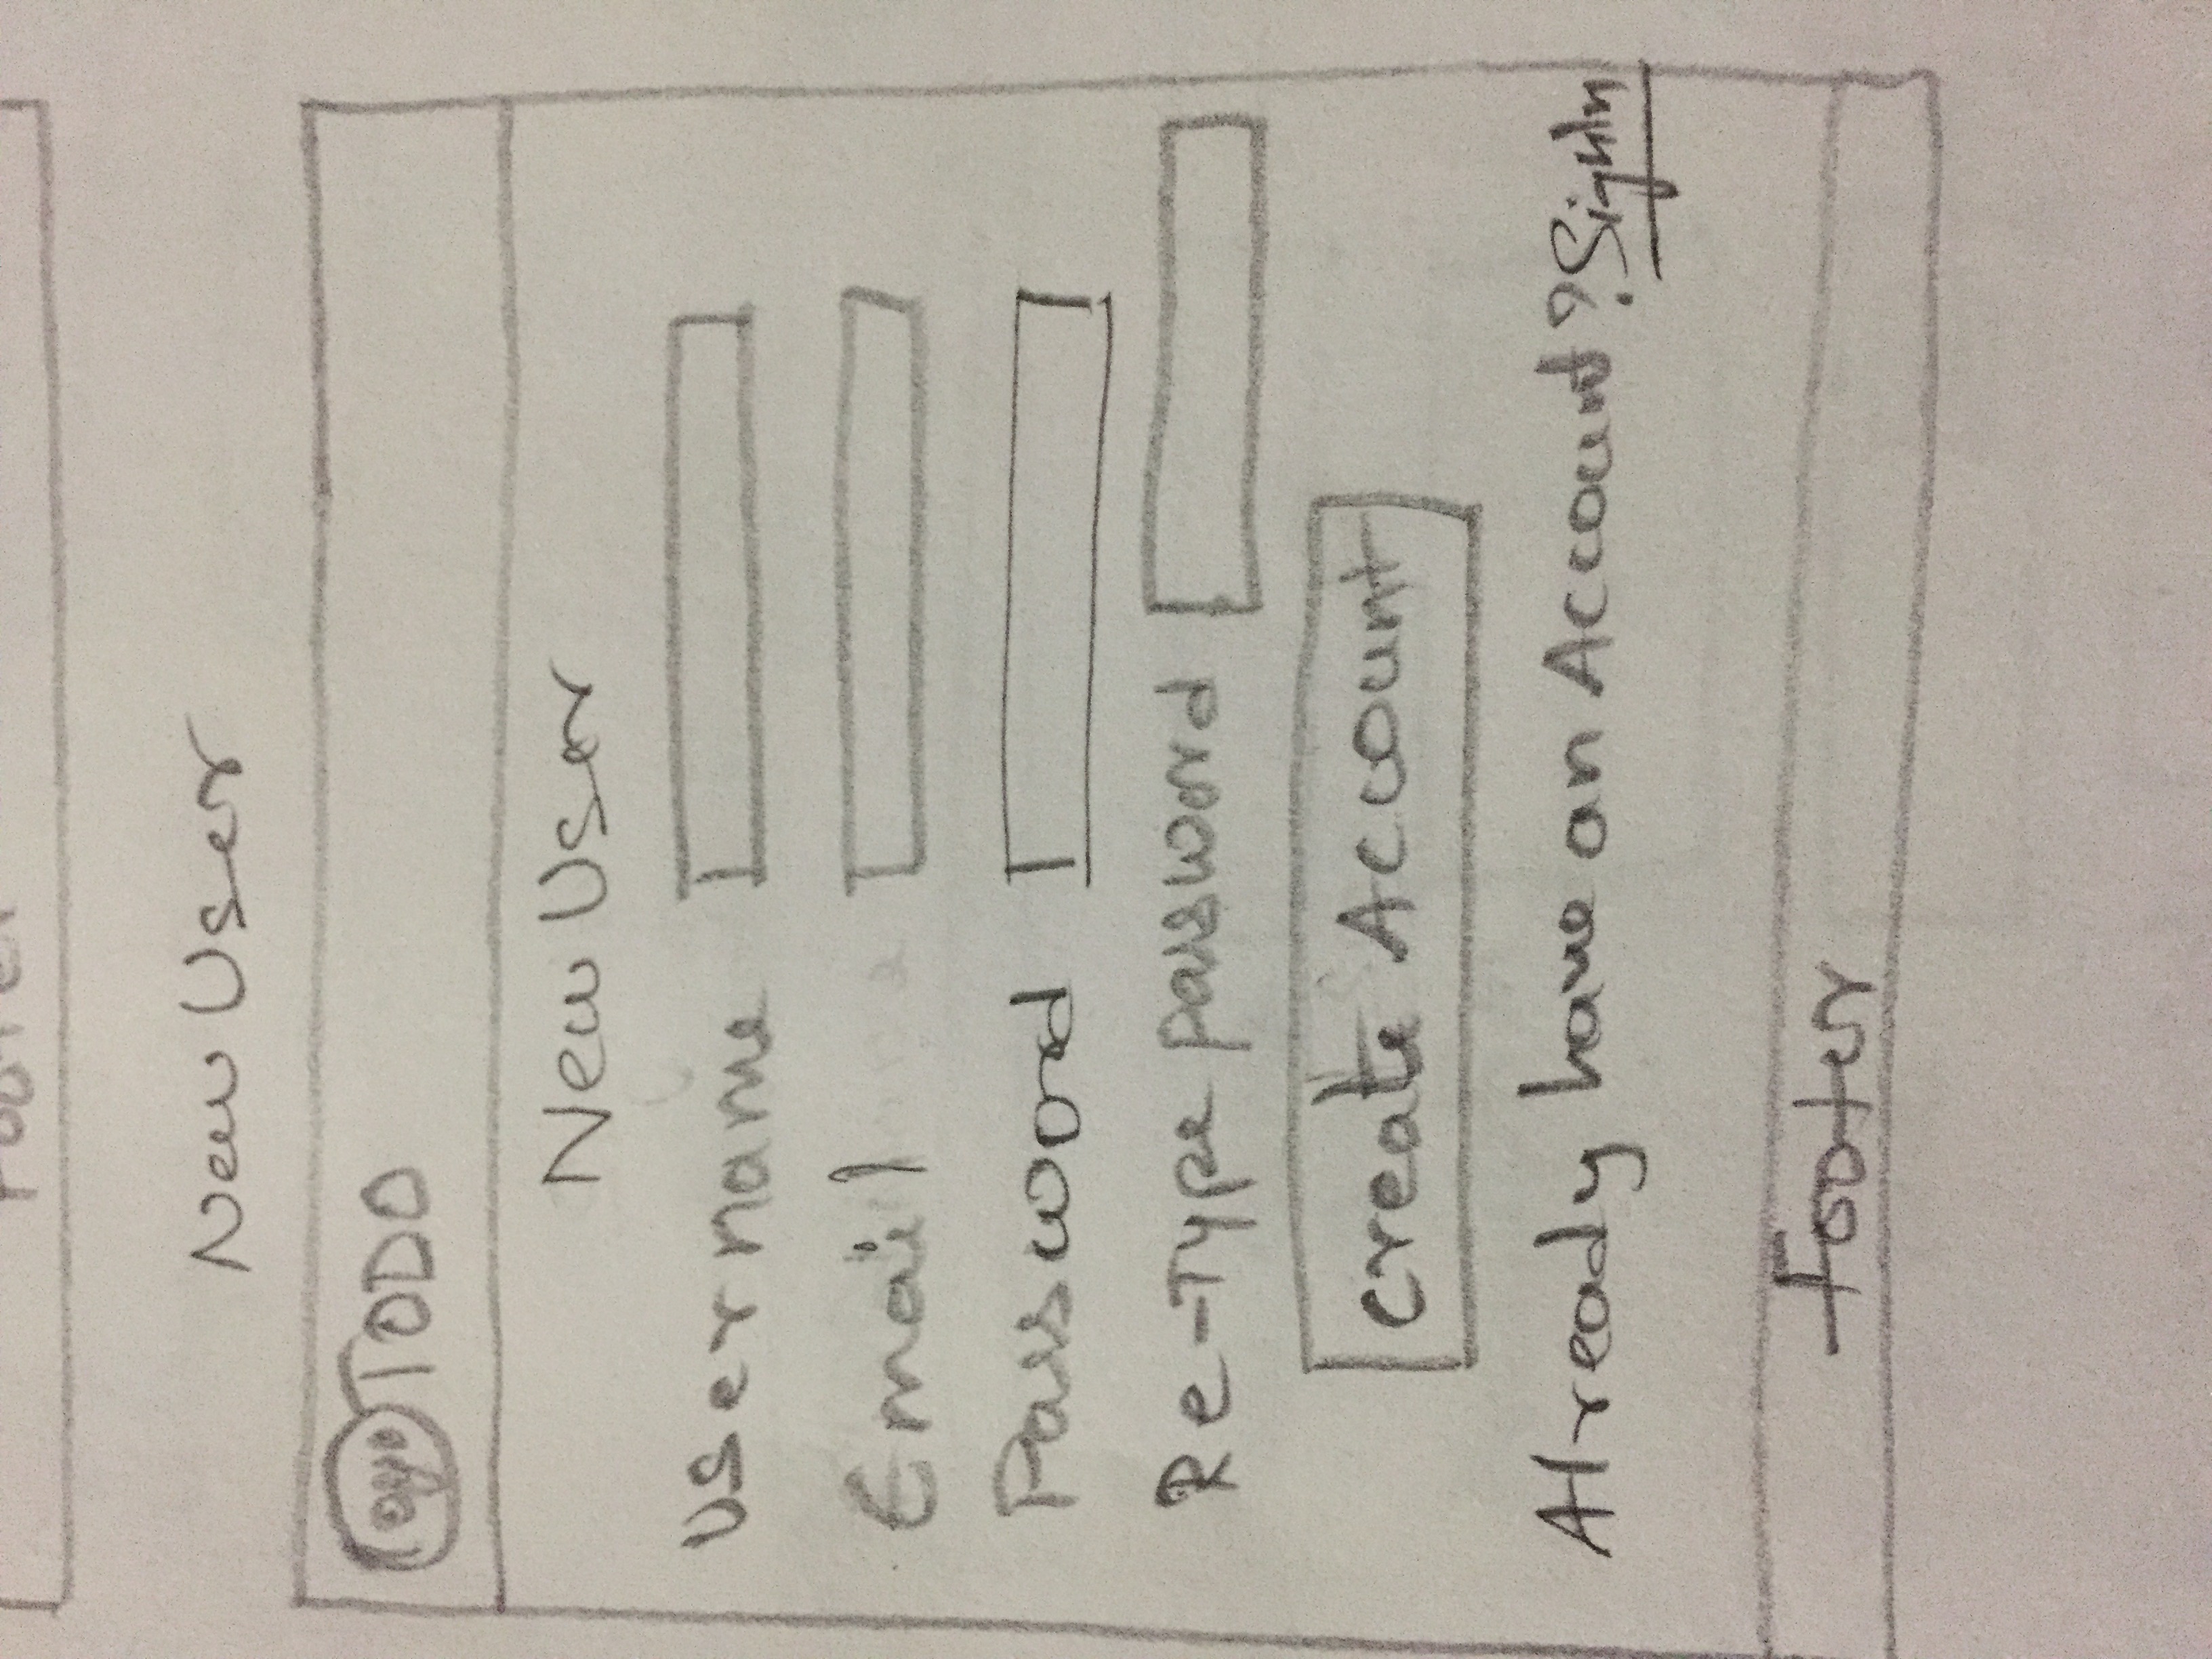 Footer
New User
Logo TODO
New User
Username
Email
Password
Re-Type password
Create Account
Already have an Account? SignIn
Footer